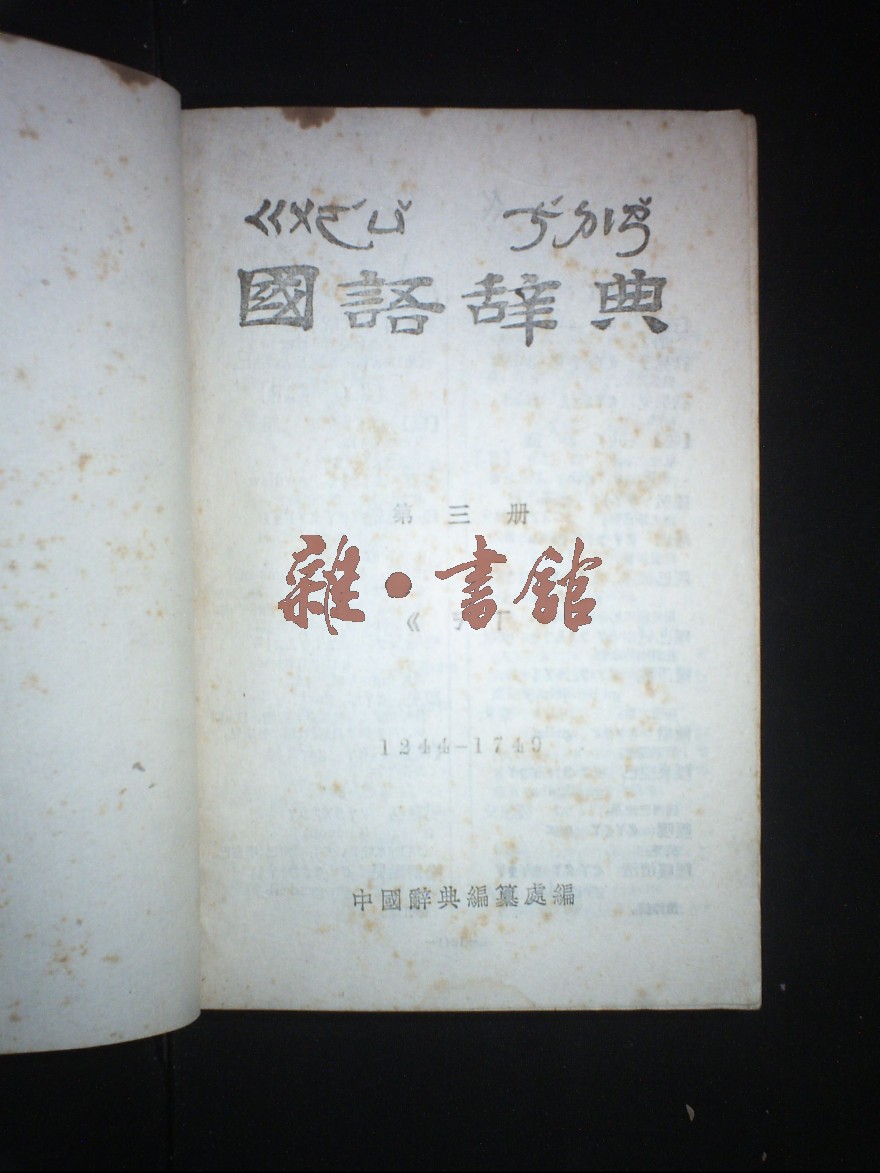 ㄍㄨㄛˊㄩˇ ㄘˊㄉㄧㄢˇ
國語辞典
第三册
雜·書館
1244-1749
中國辭典編纂處編